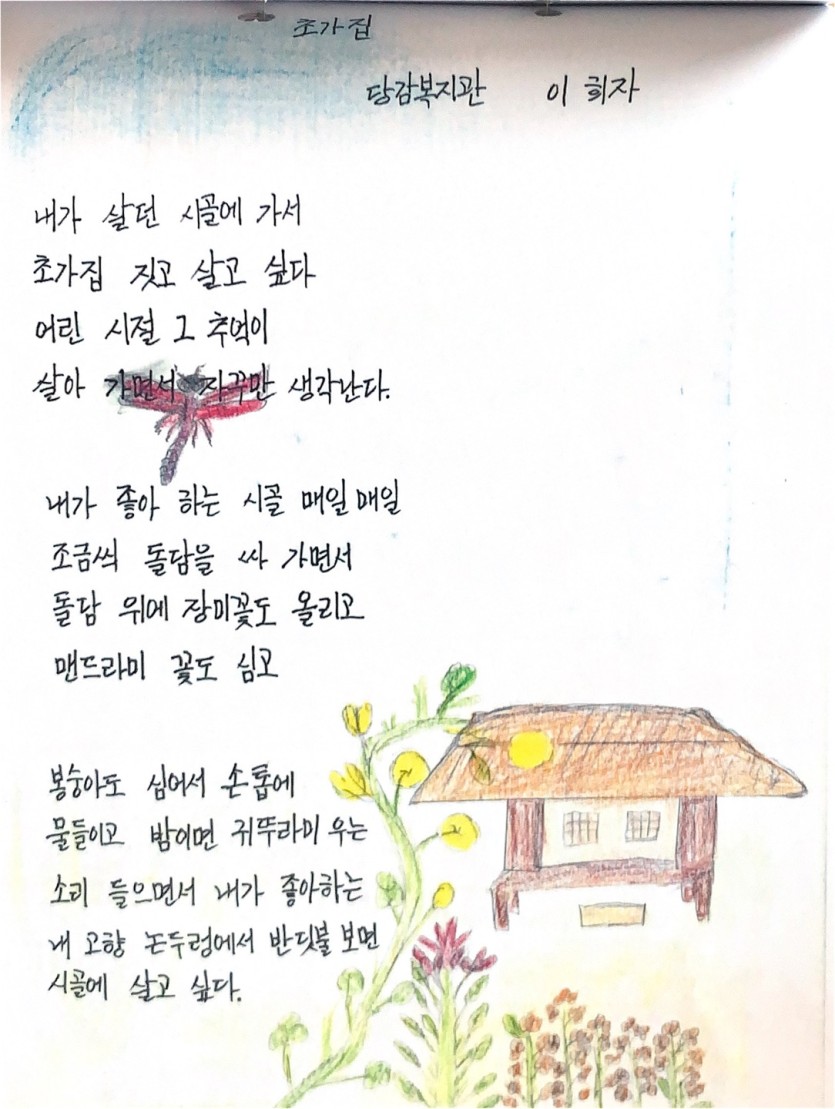 초가집
당감복지관 이 희자
내가 살던 시골에 가서
초가집 짓고 살고 싶다
어린 시절 그 추억이
살아 가면서 자꾸만 생각난다.
내가 좋아 하는 시골 매일매일
조금씩 돌담을 싸 가면서
돌담 위에 장미꽃도 올리고
맨드라미 꽃도 심고
봉숭아도 심어서 손톱에
물들이고 밤이면 귀뚜라미 우는
소리 들으면서 내가 좋아하는
내 고향 논두렁에서 반딧불 보면
시골에 살고 싶다.